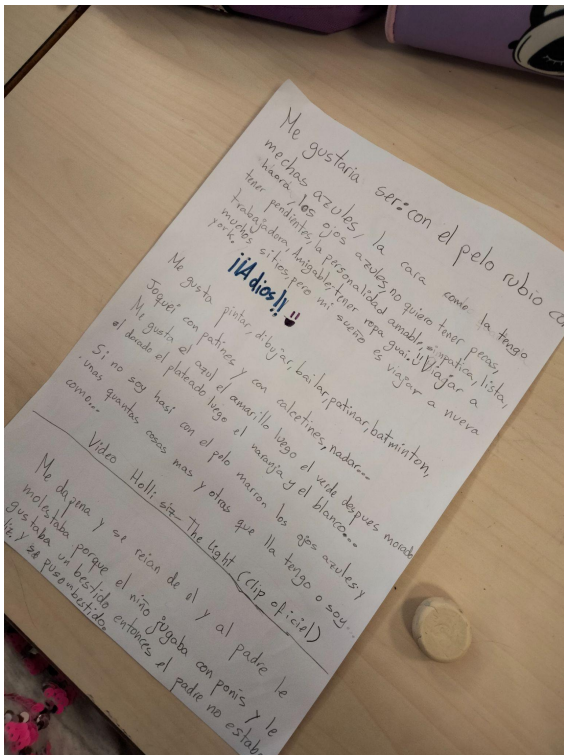 Me gustaria ser: con el pelo rubio con
mechas azules, la cara como la tengo
haora, los ojos azules, no quiero tener pecas,
tener pendientes, la personalidad amable, simpatica, lista,
trabajadora, Amigable, tener ropa guai. ¡¡Viajar a
muchos sitios, pero mi sueño es viajar a nueva
york.
¡¡Adios!!
Me gusta pintar, dibujar, bailar, patinar, batminton,
Joquei con patines y con calcetines, nadar...
Me gusta el azul el amarillo luego el verde despues morado
el dorado el plateado luego el naranja y el blanco...
Si no soy hasi con el pelo marron los ojos azules y
unas quantas cosas mas y otras que lla tengo o soy...
como...
Video Holli siz The light (clip oficiel)
Me da pena y se reian de el y al padre le
molestaba porque el niño jugaba con ponis y le
gustaba un bestido entonces el padre no estaba
y se puso un bestido.